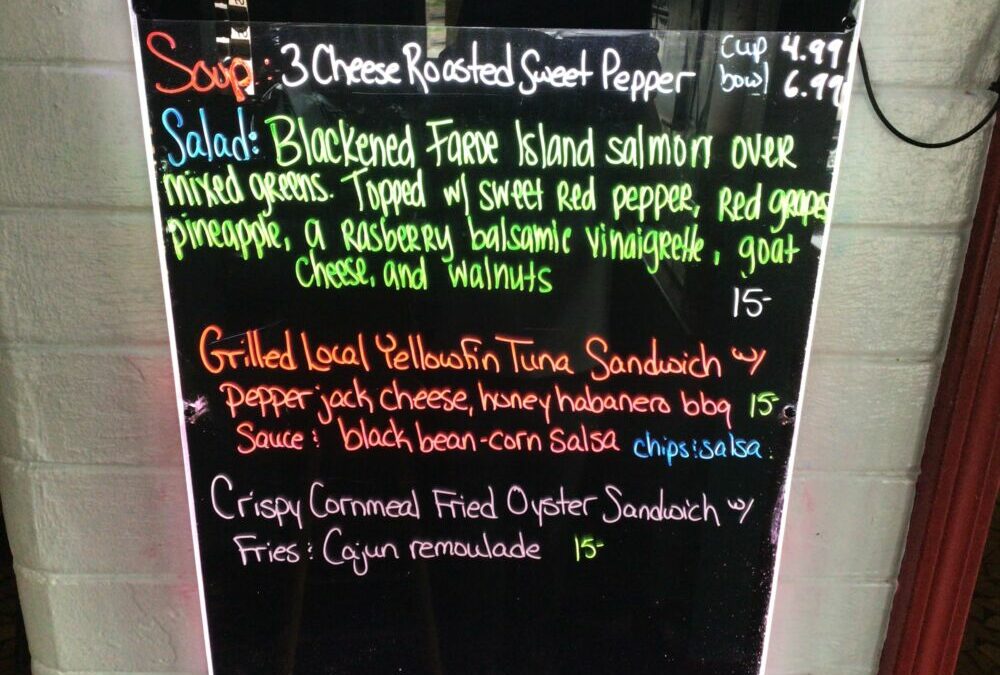 Soup: 3 Cheese Roasted Sweet Pepper cup 4.99
bowl 6.99
Salad: Blackened Faroe Island salmon over
mixed greens. Topped w/ sweet red pepper, red grapes
pineapple, a rasberry balsamic vinaigrette, goat
cheese, and walnuts
15-
Grilled Local Yellowfin Tuna Sandwich w/
pepper jack cheese, honey habanero bbq 15-
Sauce & black bean-corn salsa chips & salsa.
Crispy Cornmeal Fried Oyster Sandwich w/
Fries & Cajun remoulade 15-